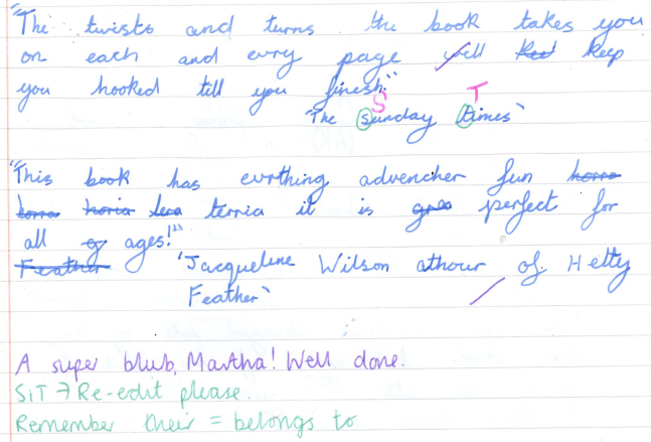 "The twists and turns the book takes you
on each and evry page will keep
you hooked till you finesh."
"The Sunday Times"
"This book has evrthing advencher fun
terria it is perfect for
all ages!"
Feather 'Jacqueline Wilson athour of Hetty
Feather'
A super blurb, Martha! Well done.
SiT → Re-edit please.
Remember their = belongs to